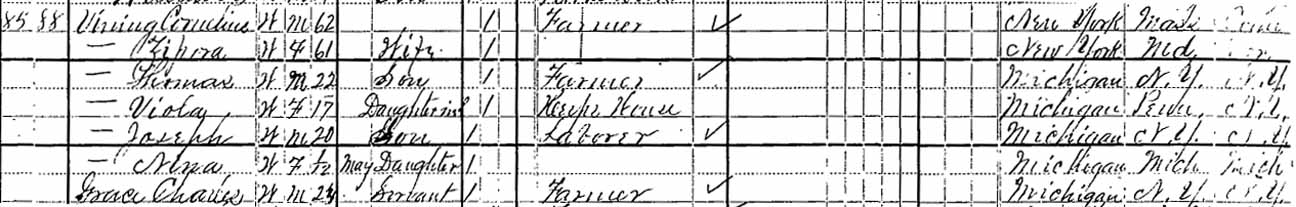 85 88 Vining Cornelius W M 62 1 Farmer ✓ New York Mass
— Zipora W F 61 Wife 1 New York Md.
— Thomas W M 22 Son 1 Farmer ✓ Michigan N.Y. N.Y.
— Viola W F 17 Daughter inl 1 Keeps House Michigan Penn N.Y.
— Joseph W M 20 Son 1 Laborer ✓ Michigan N.Y. N.Y.
— Nina W F 1/12 May Daughter 1 Michigan Mich Mich
Grace Charles W M 24 Servant 1 Farmer ✓ Michigan N.Y. N.Y.